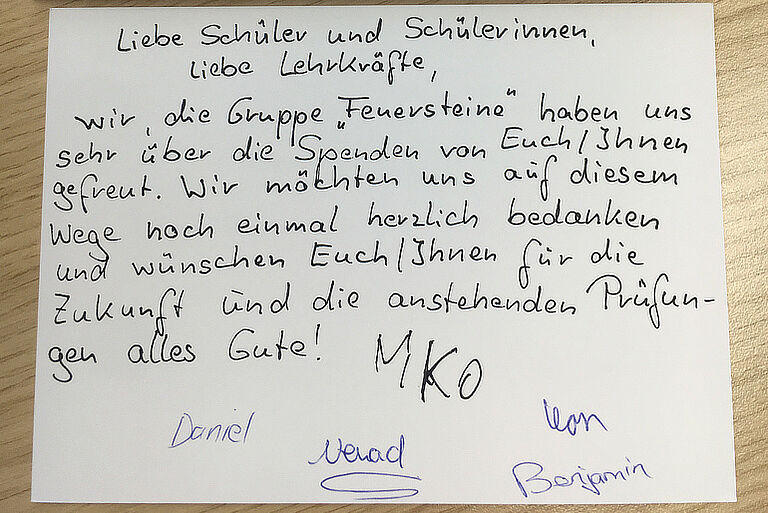 Liebe Schüler und Schülerinnen,
liebe Lehrkräfte,
wir, die Gruppe „Feuersteine“ haben uns
sehr über die Spenden von Euch/Ihnen
gefreut. Wir möchten uns auf diesem
Wege noch einmal herzlich bedanken
und wünschen Euch/Ihnen für die
Zukunft und die anstehenden Prüfun-
gen alles Gute! MKO
Daniel
Nenad
Benjamin